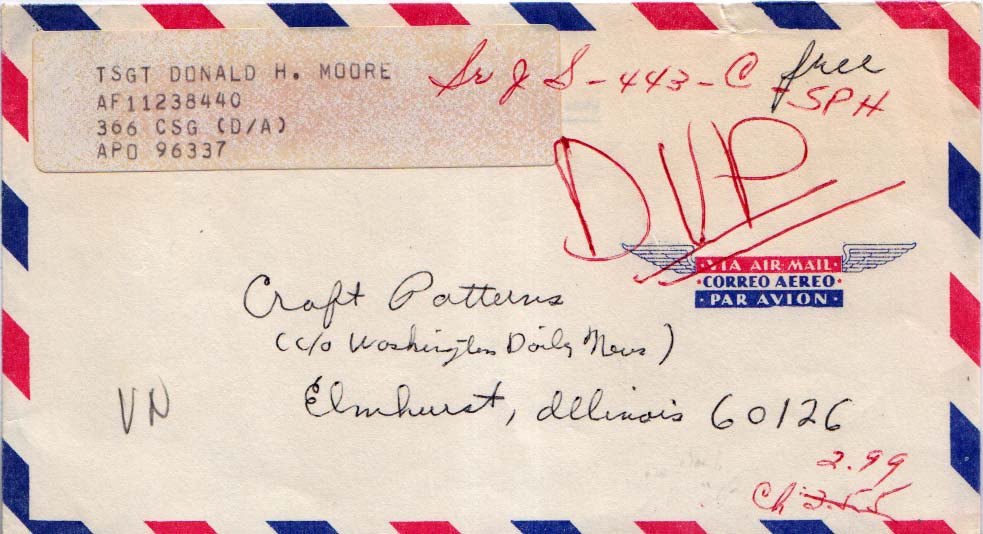 TSGT DONALD H. MOORE
AF11238440
366 CSG (D/A)
APO 96337
S-443-C
free
-SPH
DVP
VIA AIR MAIL
CORREO AEREO
PAR AVION
Craft Patterns
(c/o Washington Daily News)
Elmhurst, Illinois 60126
VN
2.99
Ch 2.55